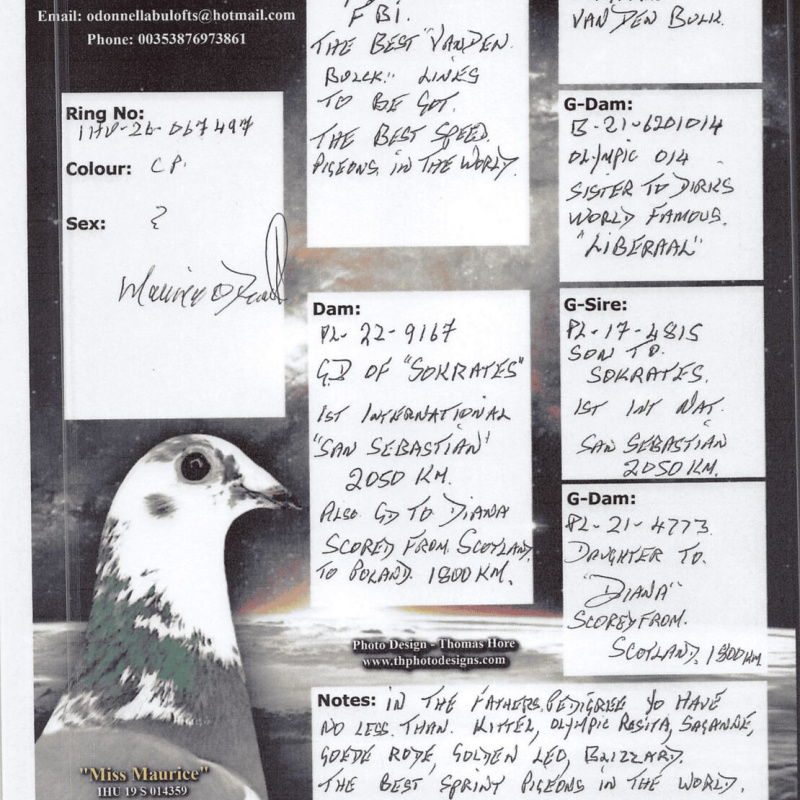 Email: odonnellabulofts@hotmail.com
Phone: 00353876973861
Ring No:
IHU-26-067497
Colour: CP.
Sex: ?
FBI.
THE BEST "VANDEN
BULCK" LINES
TO BE GOT.
THE BEST SPEED
PIGEONS IN THE WORLD.
Dam:
PL-22-9167
GD OF "SOKRATES"
1ST INTERNATIONAL
"SAN SEBASTIAN"
2050 KM.
ALSO GD TO DIANA
SCORED FROM SCOTLAND
TO POLAND. 1800KM.
VAN DEN BULK.
G-Dam:
B-21-6201014
OLYMPIC 014
SISTER TO DIRKS
WORLD FAMOUS.
"LIBERAAL"
G-Sire:
PL-17-4815
SON TO.
SOKRATES.
1ST INT NAT.
SAN SEBASTIAN
2050KM.
G-Dam:
PL-21-4773
DAUGHTER TO.
"DIANA"
SCORED FROM.
SCOTLAND. 1800KM
Photo Design - Thomas Hore
www.thphotodesigns.com
Notes: IN THE FATHERS PEDIGREE YO HAVE
NO LESS THAN. KITTEL, OLYMPIC ROSITA, SAGANNE,
GOEDE RODE, GOLDEN LEO, BLIZZARD.
THE BEST SPRINT PIGEONS IN THE WORLD.
"Miss Maurice"
IHU 19 S 014359